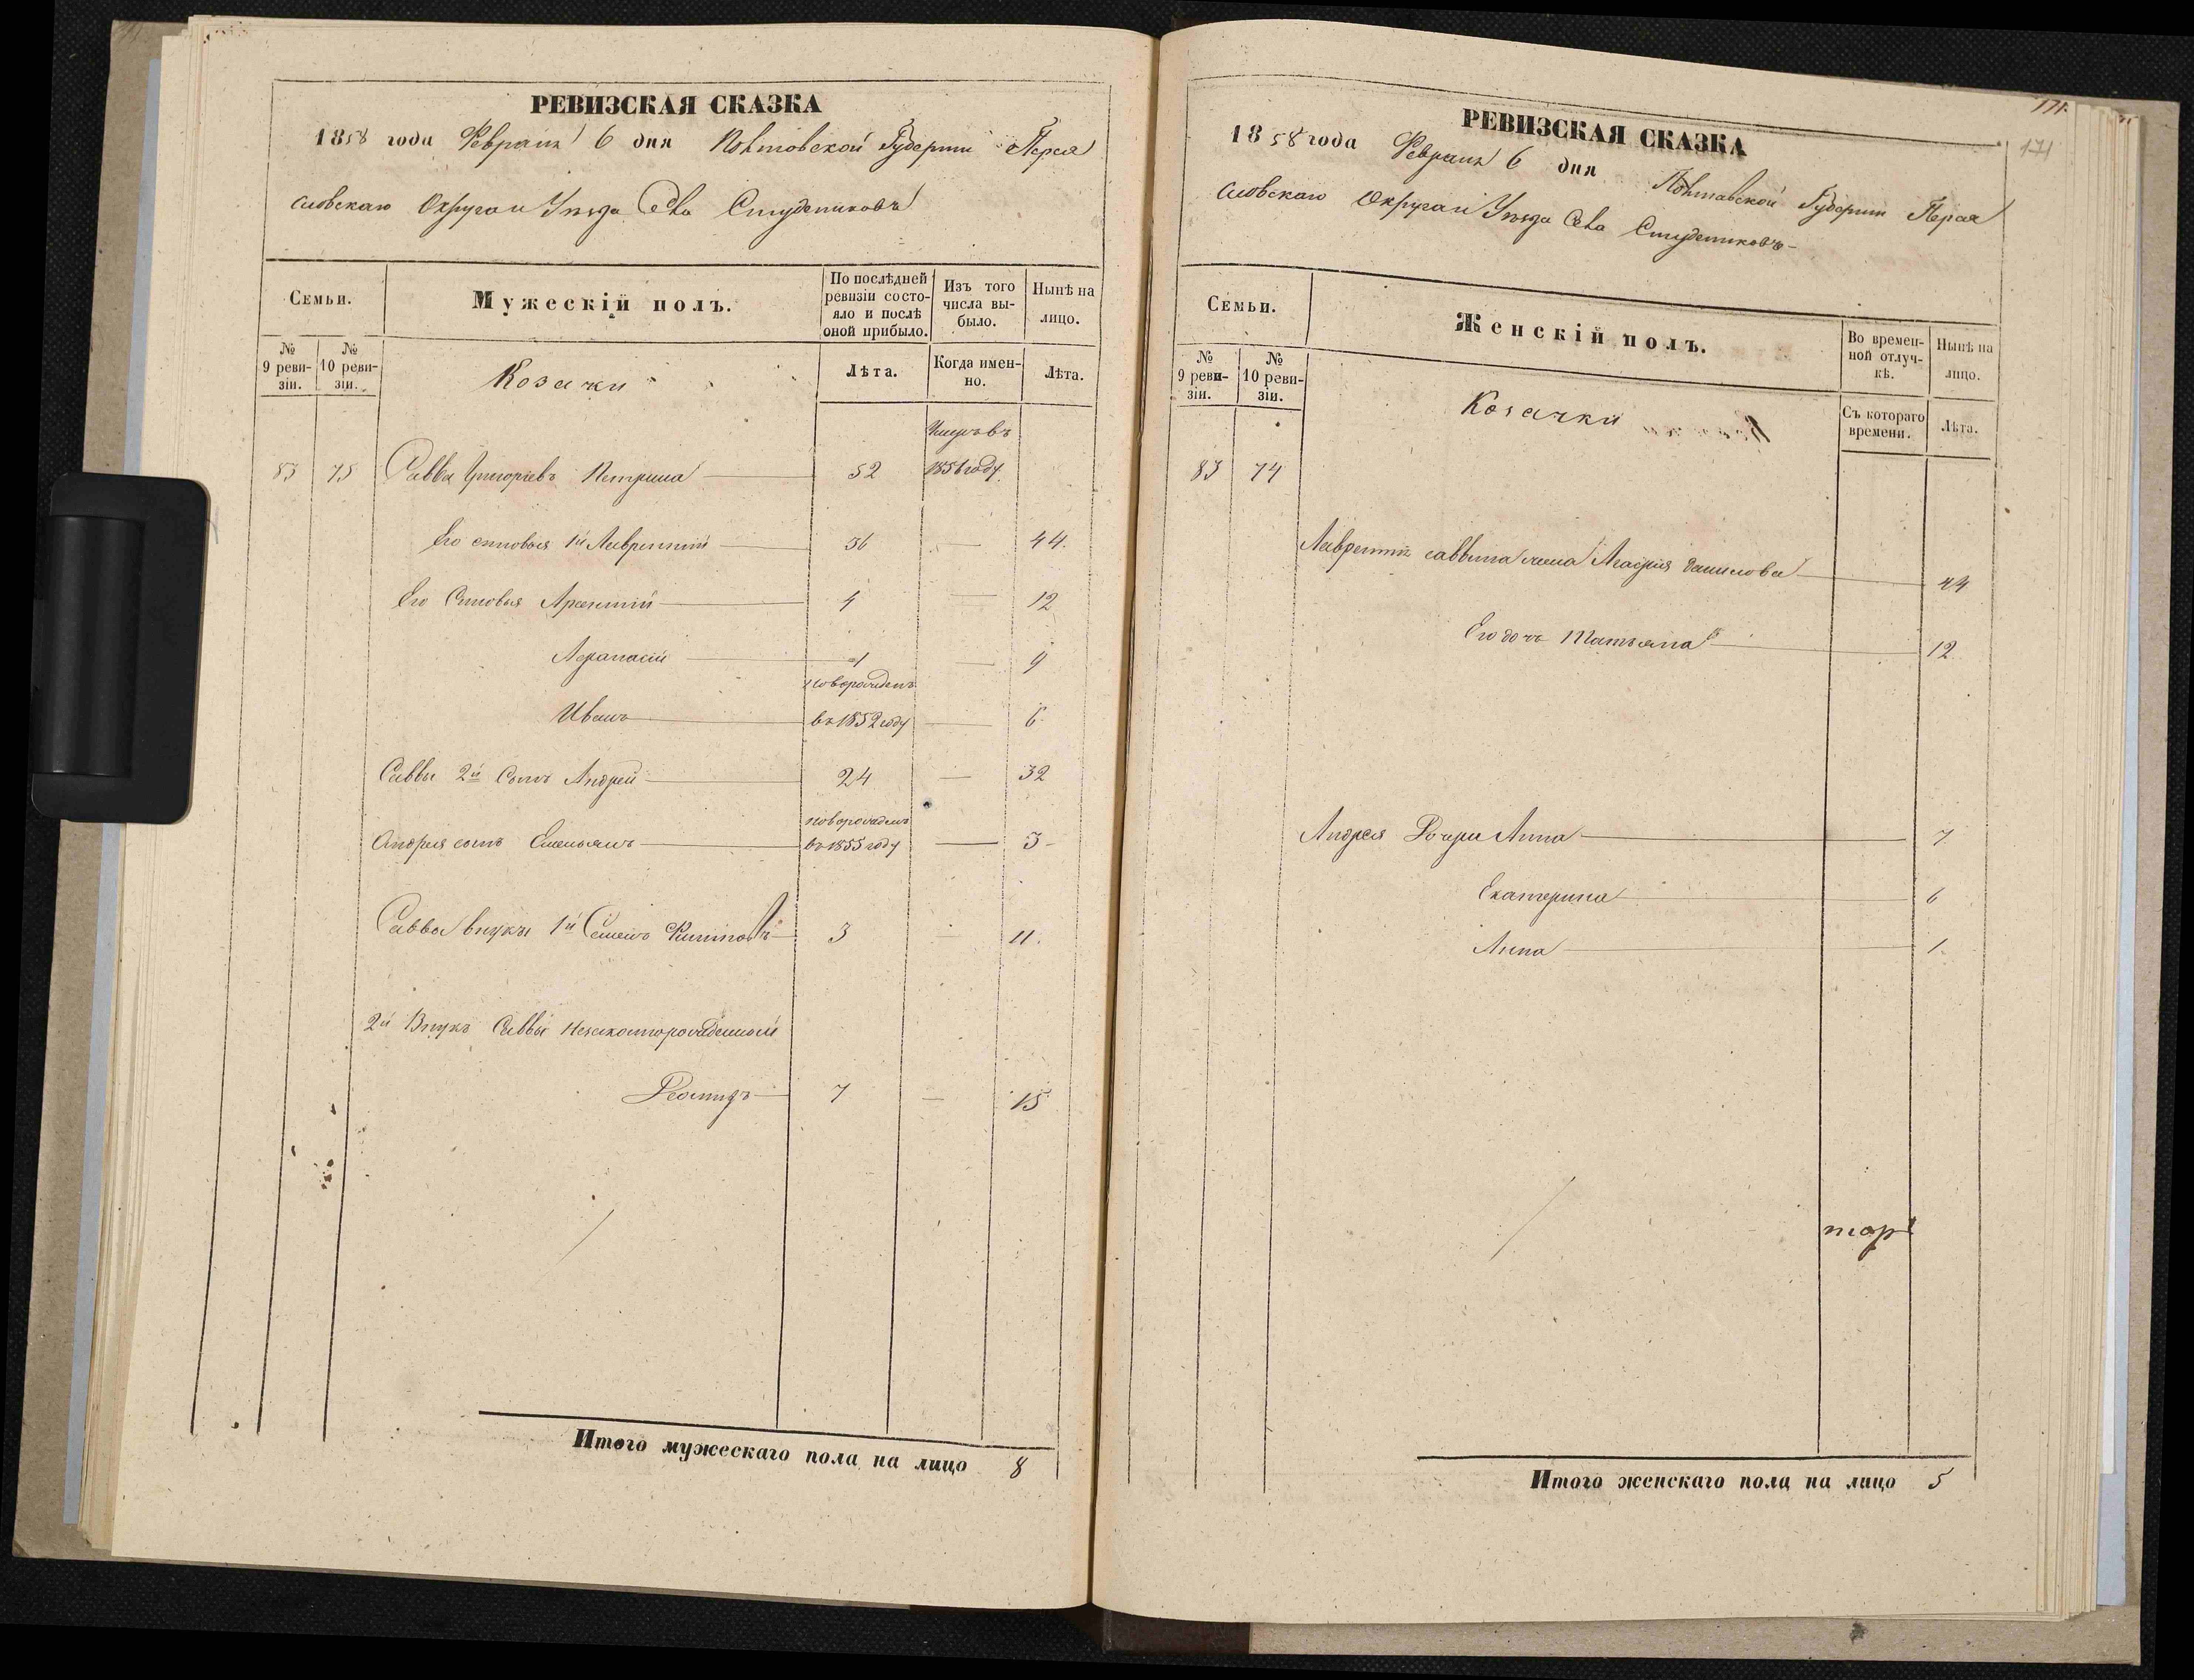 РЕВИЗСКАЯ СКАЗКА
1858 года Февраля 6 дня Полтовской Губерніи Перея
словскаго Округа и Уѣзда Села Студениковъ
Семьи.
Мужескій полъ.
По послѣдней ревизіи состо-
яло и послѣ
оной прибыло.
Изъ того
числа вы-
было.
Нынѣ на
лицо.
№
9 реви-
зіи.
№
10 реви-
зіи.
Козачки
Лѣта.
Когда имен-
но.
Лѣта.
83 75 Савва Григоріевъ 52 1851 году
Его сыновья 1й Лаврентій 36 — 44.
Его Сыновья Арсентій 4 — 12
Афанасій 1 — 9
новорожденъ
Иванъ въ 1852 году — 6
Саввы 2й Сынъ Андрей 24 — 32
новорожденъ
Андрея сынъ Емельянъ въ 1855 году — 3
Саввы внукъ 1й Семенъ 3 — 11.
2й Внукъ Саввы Незаконнорожденный
7 — 15
Итого мужескаго пола на лицо 8
171.
171
РЕВИЗСКАЯ СКАЗКА
1858 года Февраля 6 дня Полтавской Губерніи Перея
словскаго Округа и Уѣзда Села Студениковъ
Семьи.
Женскій полъ.
Во времен-
ной отлуч-
кѣ.
Нынѣ на
лицо.
№
9 реви-
зіи.
№
10 реви-
зіи.
Козачки
Съ котораго
времени.
Лѣта.
83 74
Лаврентія саввина жена Агафія данилова 44
Его дочь Татьяна 12
Андрея Дочери Анна 7
Екатерина 6
Анна 1
тор
Итого женскаго пола на лицо 5